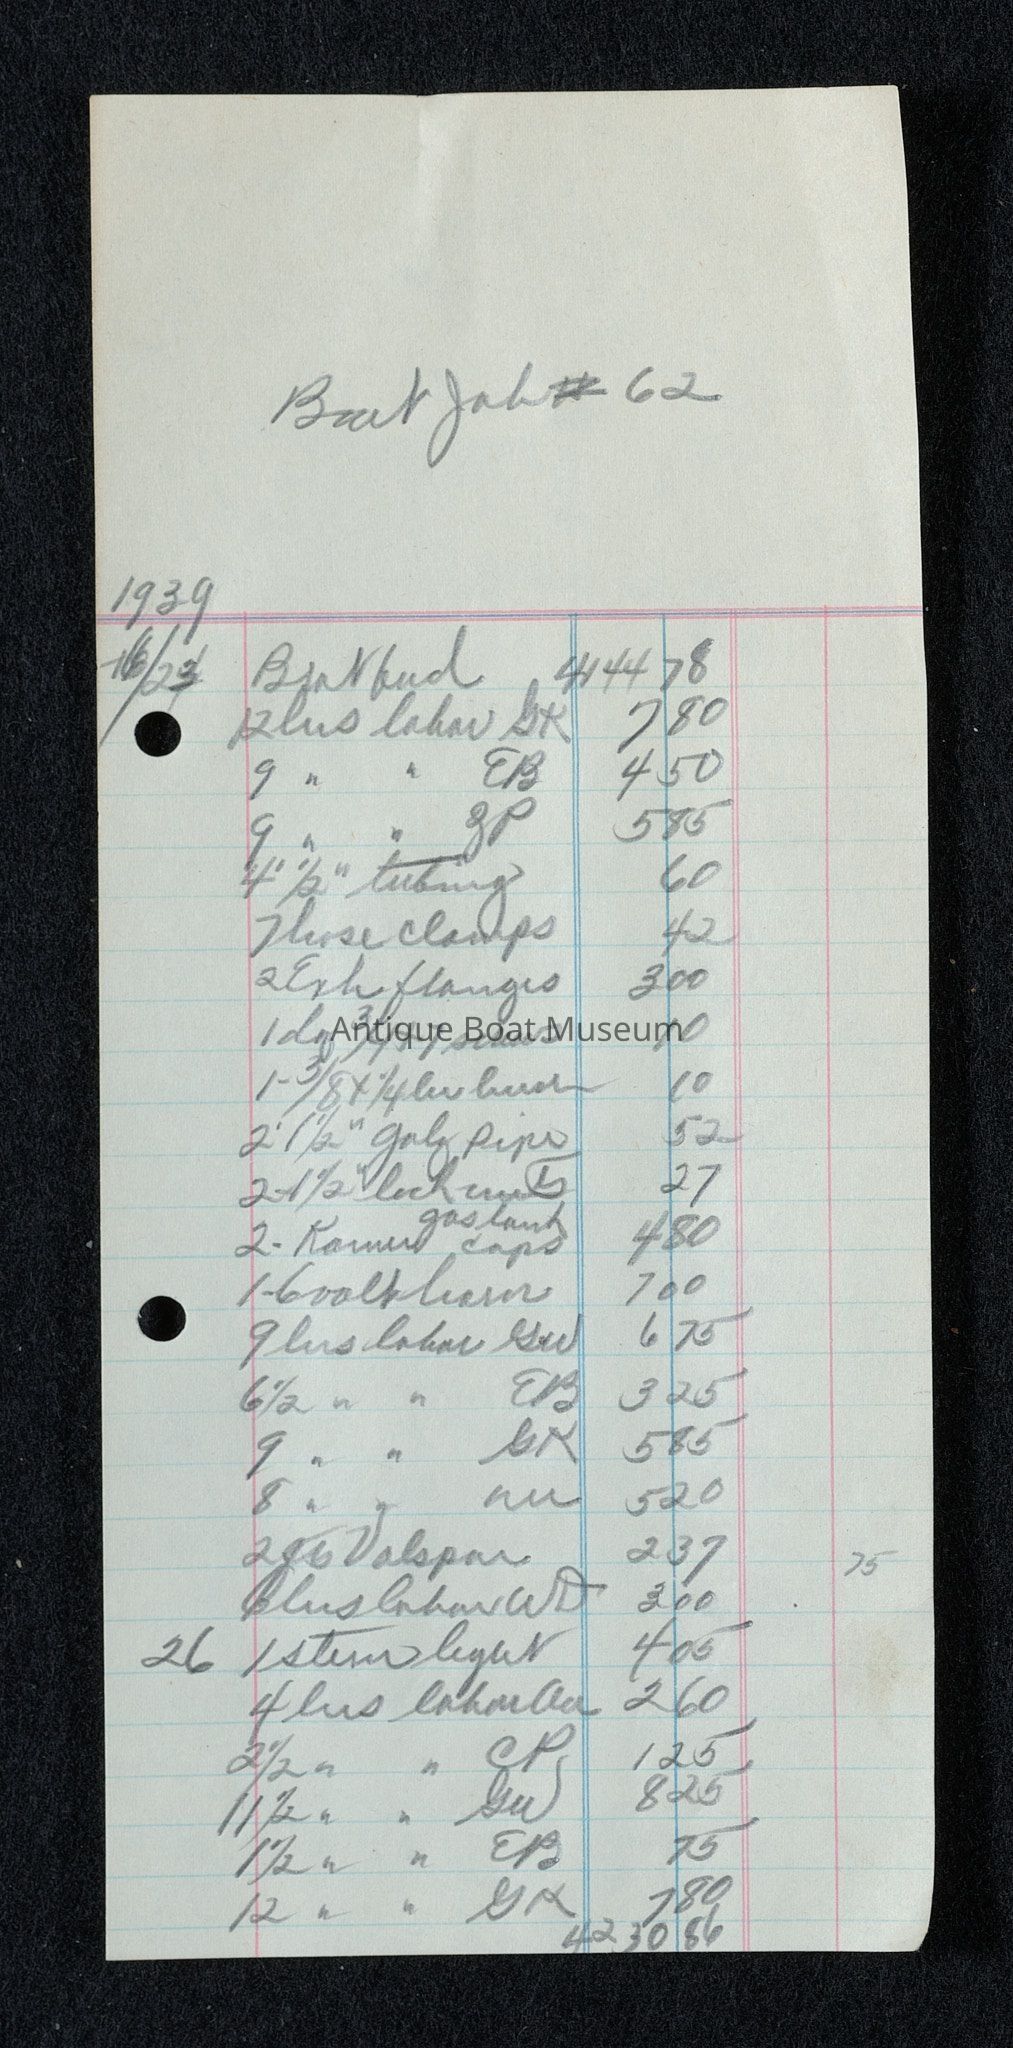 Boat Job # 62
1939
6/24 Brot fwd 4144 78
12 hrs labor GK 7 80
9 " " EB 4 50
9 " " GP 5 85
4' 1/2" tubing 60
7 hose clamps 42
2 Exh flanges 3 00
1 10
Antique Boat Museum
1-3/8 x 1/4 10
2' 1 1/2" galv pipe 52
2-1 1/2" lock nuts 27
2- gas tank caps 4 80
1-6 volt horn 7 00
9 hrs labor GW 6 75
6 1/2 " " EB 3 25
9 " " GK 5 85
8 " " 5 20
Valspar 2 37 75
6 hrs labor WD 3 00
26 1 stern light 4 05
4 hrs labor 2 60
2 1/2 " " CP 1 25
11 1/2 " " GW 8 25
1 1/2 " " EB 75
12 " " GK 7 80
4230 86